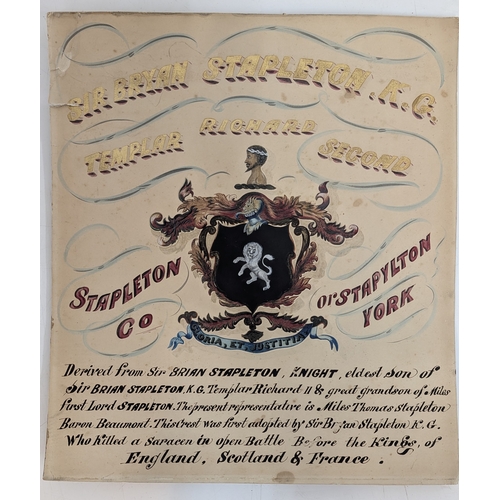 SIR BRYAN STAPLETON. K.G.
TEMPLAR RICHARD SECOND
STAPLETON OR STAPYLTON
CO YORK
GLORIA, ET, JUSTITIA
Derived from Sir BRIAN STAPLETON, KNIGHT, eldest son of
Sir BRIAN STAPLETON, K.G. Templar Richard II & great grandson of Miles
first Lord STAPLETON. The present representative is Miles Thomas Stapleton
Baron Beaumont. This Crest was first adopted by Sir Bryan Stapleton K.G.
Who Killed a Saracen in open Battle Before the Kings, of
England, Scotland & France.